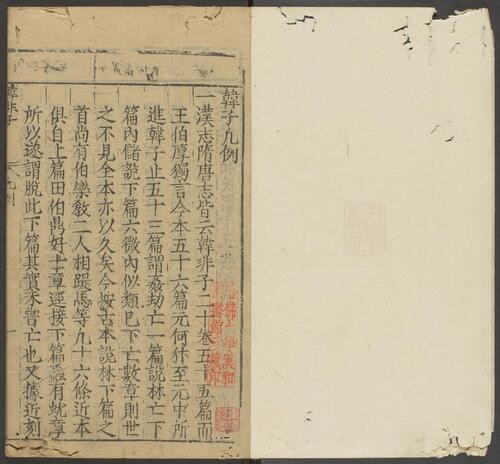 韓子凡例
一漢志隋唐志皆云韓非子二十卷五十五篇而
王伯厚獨言今本五十六篇元何犿至元中所
進韓子止五十三篇謂姦劫亡一篇說林亡下
篇內儲說下篇六微內似類已下亡數章則世
之不見全本亦以久矣今按古本說林下篇之
首尚有伯樂敎二人相踶馬等九十六條近本
俱自上篇田伯鼎好士章逕接下篇蟲有蚘章
所以遂謂脫此下篇其實未嘗亡也又據近刻
韓非子
凡例
一
哈佛大學漢和
圖書館珍藏印